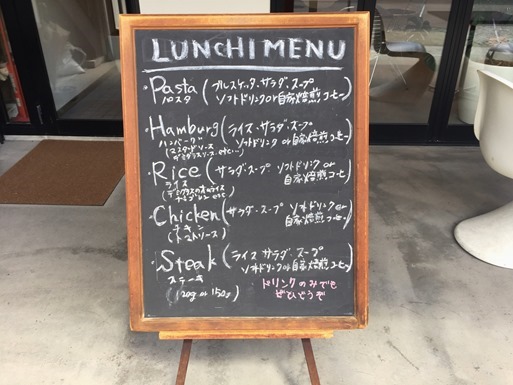 LUNCH MENU
・Pasta (ブルスケッタ・サラダ・スープ
パスタ ソフトドリンク or 自家焙煎コーヒー)
・Hamburg (ライス・サラダ・スープ
ハンバーグ ソフトドリンク or 自家焙煎コーヒー)
(マスタードソース
デミグラスソース etc...)
・Rice (サラダ・スープ ソフトドリンク or
ライス 自家焙煎コーヒー)
(デミグラスのオムライス
etc)
・Chicken (サラダ・スープ ソフトドリンク or
チキン 自家焙煎コーヒー)
(トマトソース)
・Steak (ライス サラダ・スープ
ステーキ ソフトドリンク or 自家焙煎コーヒー)
(120g or 150g)
ドリンクのみでも
ぜひどうぞ